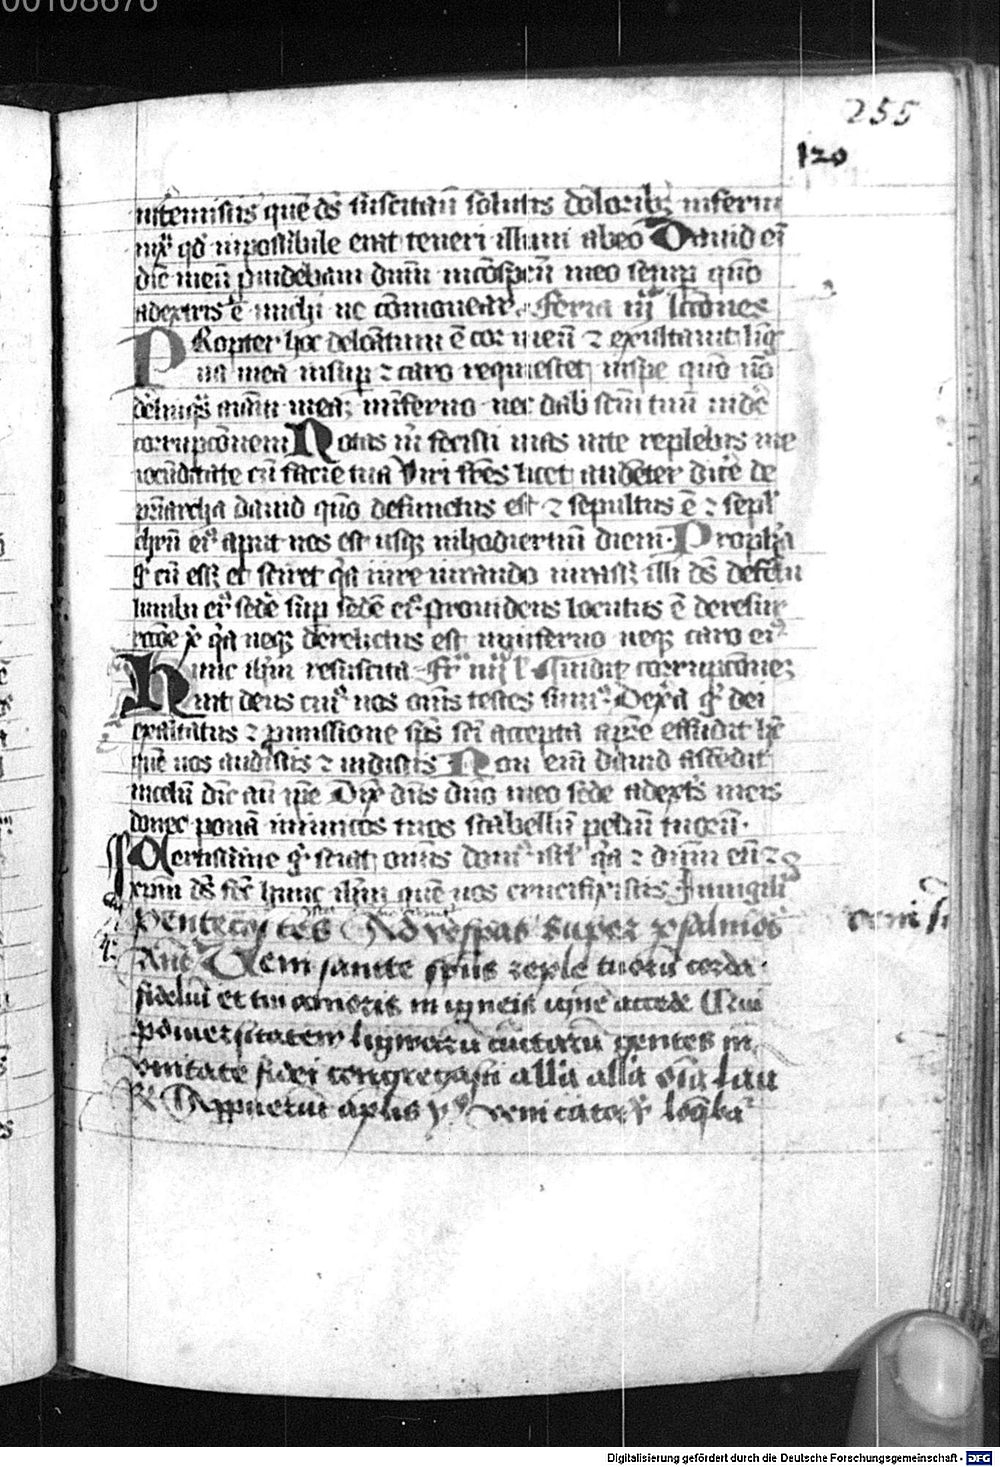 00108676
255
120
int̄emistis quē ds̄ suscitauit solutis dolorib₃ inferni
iux̄ qd̄ inpossibile erat teneri illum abeo Dauid ei᷑
dic̄ meū puidebam dn̄m incōspcū meo semp quō
adextris ē michi ne cōmouear Feria iij lcōnes
PRopter hoc delcātum ē cor meū ⁊ exultauit lig
ua mea insup ⁊ caro requiescet inspe quō nō
dēlinqs̄ aīam meaȝ inferno nec dab̄ scm̄ tuū uidē
corrupcōnem Notas m̄ fecisti uias uite replebis me
iocūditate cū facie tua Viri frēs licet audēter dicē de
priarcha dauid quō defunctus est ⁊ sepultus ē ⁊ sepl
chrū ei᷑ aput nos est usq₃ inhodiernū diem Propha
g̊ cū ess₃ et sciret qa iure iurando iurass₃ illi ds̄ de fctu
lumbi ei᷑ sedē sup sedē ei᷑ prouidens locutus ē deresur
reccōe xp̄i qa neq₃ dērelictus est in inferno neq₃ caro ei᷑
Hunc ihm̄ resuscita Fr᷑ iiij l uidit corrupcōneȝ
uit deus cui᷑ nos om̄s testes sum᷑ Dexta g̊ dei
exaltatus ⁊ pmissione sps̄ sci accepta apre effudit hc̄
quē uos audistis ⁊ uidistis Non em̄ dauid ascēdit
incelū dic̄ aū ipe Dix̄ dn̄s dn̄o meo sede adextris meis
donec ponā inimicos tuos scabellū pedū tuoꝝ
Certissime g̊ sciat om̄is dom᷑ isrl̄ qa ⁊ dn̄m eū ⁊
xpm̄ ds̄ fec̄ hunc ihm̄ quē uos crucifixistis In uigili᷑
Pentecostes Ad vespas super psalmos
Anā Veni sancte sps̄ reple tuoꝝ corda
fideliū et tui amoris in igneis igne accede Qui
p diuersitatem linguaꝝ cūctaꝝ gentes in
vnitate fidei congregasti alla alla
℟ Apparuerunt aplis veni creator loqba᷑
veni s
Digitalisierung gefördert durch die Deutsche Forschungsgemeinschaft - DFG